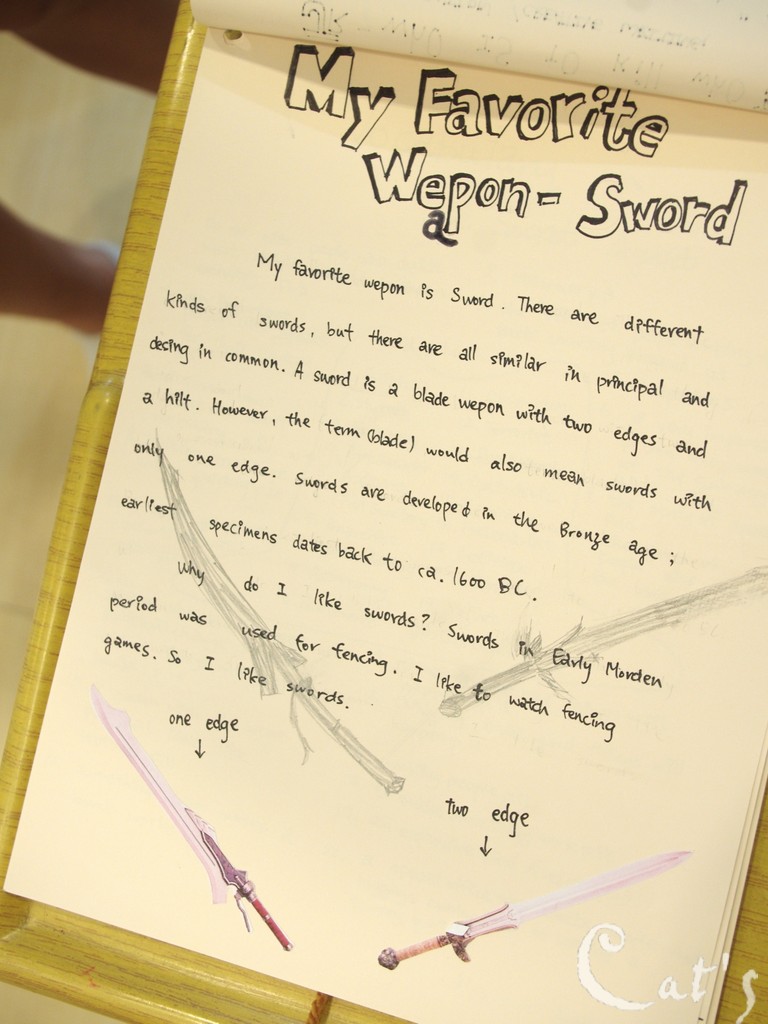 My Favorite
Wepon - Sword
a
My favorite wepon is Sword. There are different
kinds of swords, but there are all similar in principal and
desing in common. A sword is a blade wepon with two edges and
a hilt. However, the term (blade) would also mean swords with
only one edge. Swords are developed in the Bronze age ;
earliest specimens dates back to ca. 1600 BC.
Why do I like swords? Swords in Early Morden
period was used for fencing. I like to watch fencing
games. So I like swords.
one edge
↓
two edge
↓
Cat's